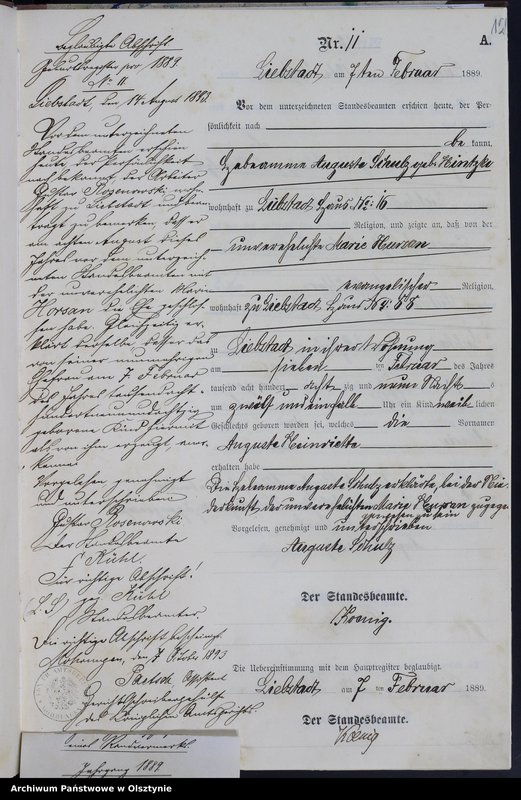 12
A.
Nr. 11
Liebstadt am 7ten Februar 1889.
Vor dem unterzeichneten Standesbeamten erschien heute, der Per-
sönlichkeit nach
be kannt,
Hebeamme Auguste Schulz geb.
wohnhaft zu Liebstadt Haus No: 16
Religion, und zeigte an, daß von der
unverehelichte Marie
evangelischer Religion,
wohnhaft zu Liebstadt Haus No: 88
zu Liebstadt in ihrer Wohnung
am sieben ten Februar des Jahres
tausend acht hundert acht zig und neun Nachts
um zwölf und einhalb Uhr ein Kind weib lichen
Geschlechts geboren worden sei, welches die Vornamen
Auguste Heinriette
erhalten habe
Die Hebeamme Auguste Schulz erklärte, bei der Nie-
derkunft der unverehelichten Marie zugegen
gewesen zu sein
Vorgelesen, genehmigt und unterschrieben
Auguste Schulz
Der Standesbeamte.
Koenig.
Die Uebereinstimmung mit dem Hauptregister beglaubigt.
Liebstadt am 7 ten Februar 1889.
Der Standesbeamte.
Koenig
Beglaubigte Abschrift
Geburtsregister pro 1889
No 11
Liebstadt, den 14 August 188
Vor dem unterzeichneten
Standesbeamten erschien
heute der Persönlichkeit
nach bekannt, der Arbeiter
Gustav Rosenowski wohn-
haft zu Liebstadt und bean-
tragte zu bemerken, daß er
am achten August dieses
Jahres vor dem unterzeich-
neten Standesbeamten mit
der unverehelichten Marie
Horsan die Ehe geschlos-
sen habe. Gleichzeitig er-
klärt derselbe, daß er das
von seiner nunmehrigen
Ehefrau am 7 Februar
des Jahres tausendacht-
hundertneunundachtzig
geborene Kind hiermit
als von ihm erzeugt, aner-
kenne
Vorgelesen genehmigt
und unterschrieben
Gustav Rosenowski
Der Standesbeamte
F Kühl
Für richtige Abschrift!
(L.S.) gez Kühl
Standesbeamter
Die richtige Abschrift bescheinigt
Mohrungen, den 7 Octobr 1893
Gerichtsschreibergehülfe
des Königlichen Amtsgerichts.
eines Randvermerks
Jahrgang 1889
Archiwum Państwowe w Olsztynie